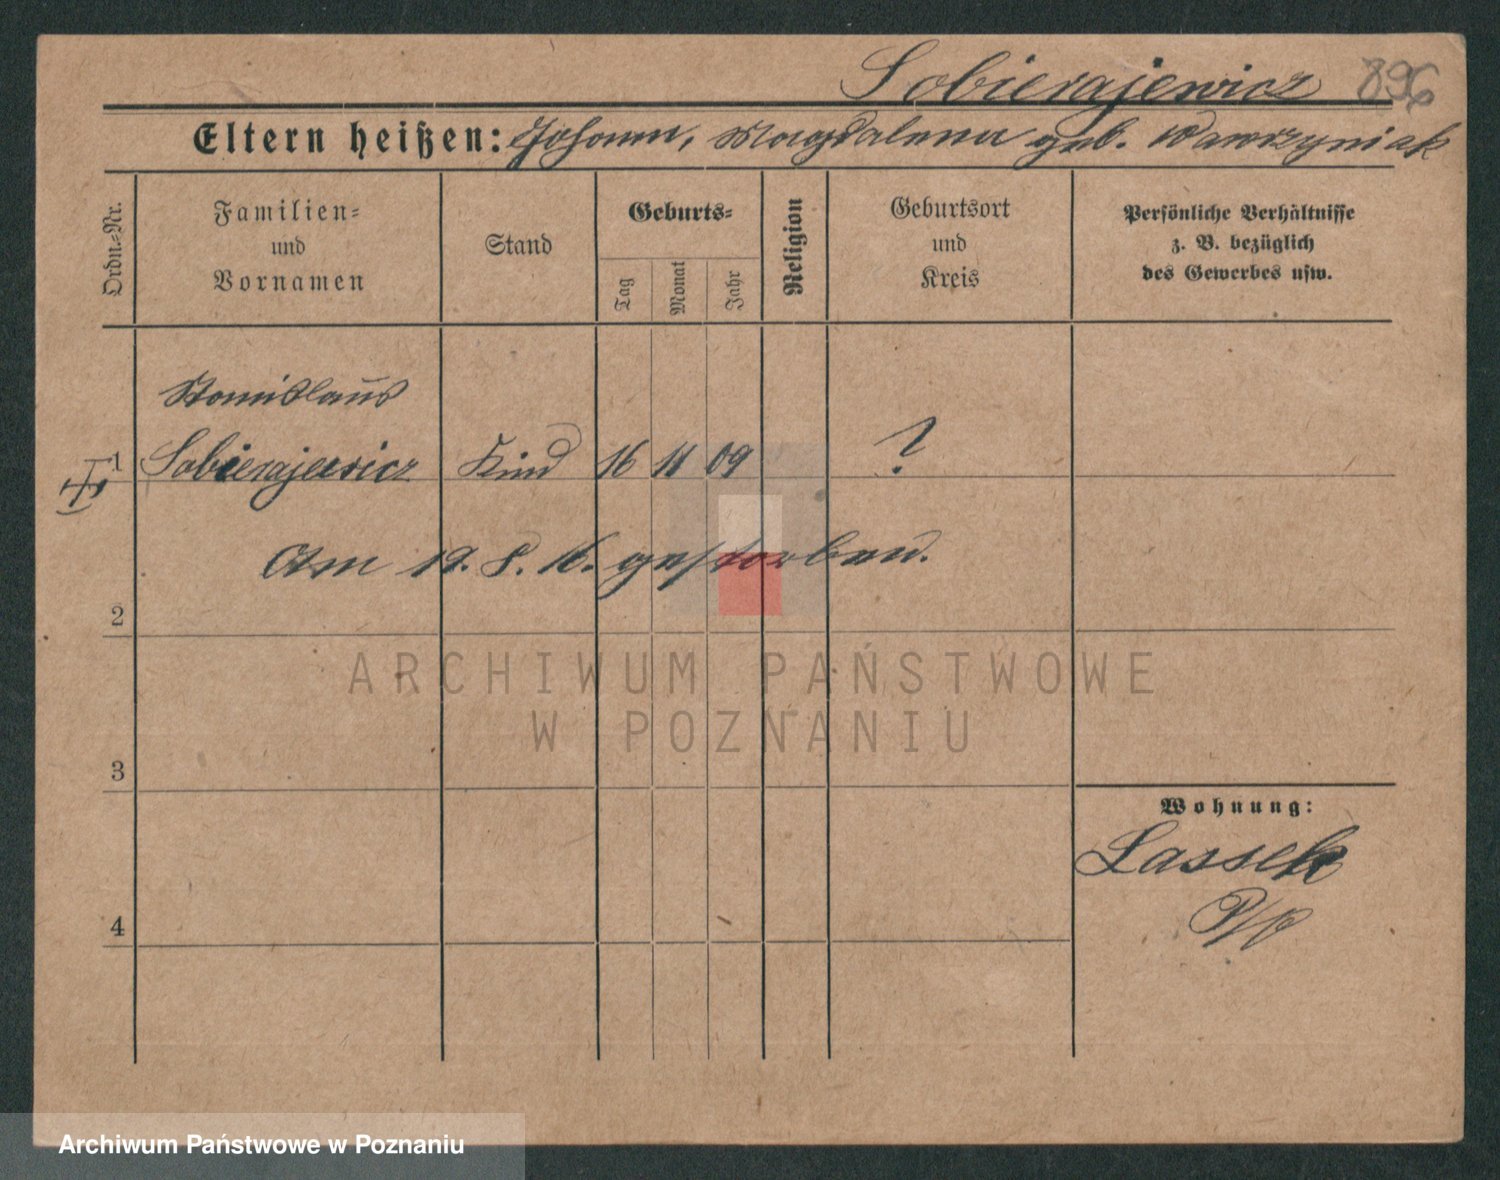 Sobierajewicz 896
Eltern heißen: Johann, Magdalena geb. Wawrzyniak
Ordn.=Nr.
Familien=
und
Vornamen
Stand
Geburts=
Tag
Monat
Jahr
Religion
Geburtsort
und
Kreis
Persönliche Verhältnisse
z. B. bezüglich
des Gewerbes usw.
Stanislaus
1 Sobierajewicz Kind 16 11 09 ?
Am 19. 8. 16. gestorben.
2
ARCHIWUM PAŃSTWOWE
W POZNANIU
3
Wohnung:
Lassek
4
Archiwum Państwowe w Poznaniu